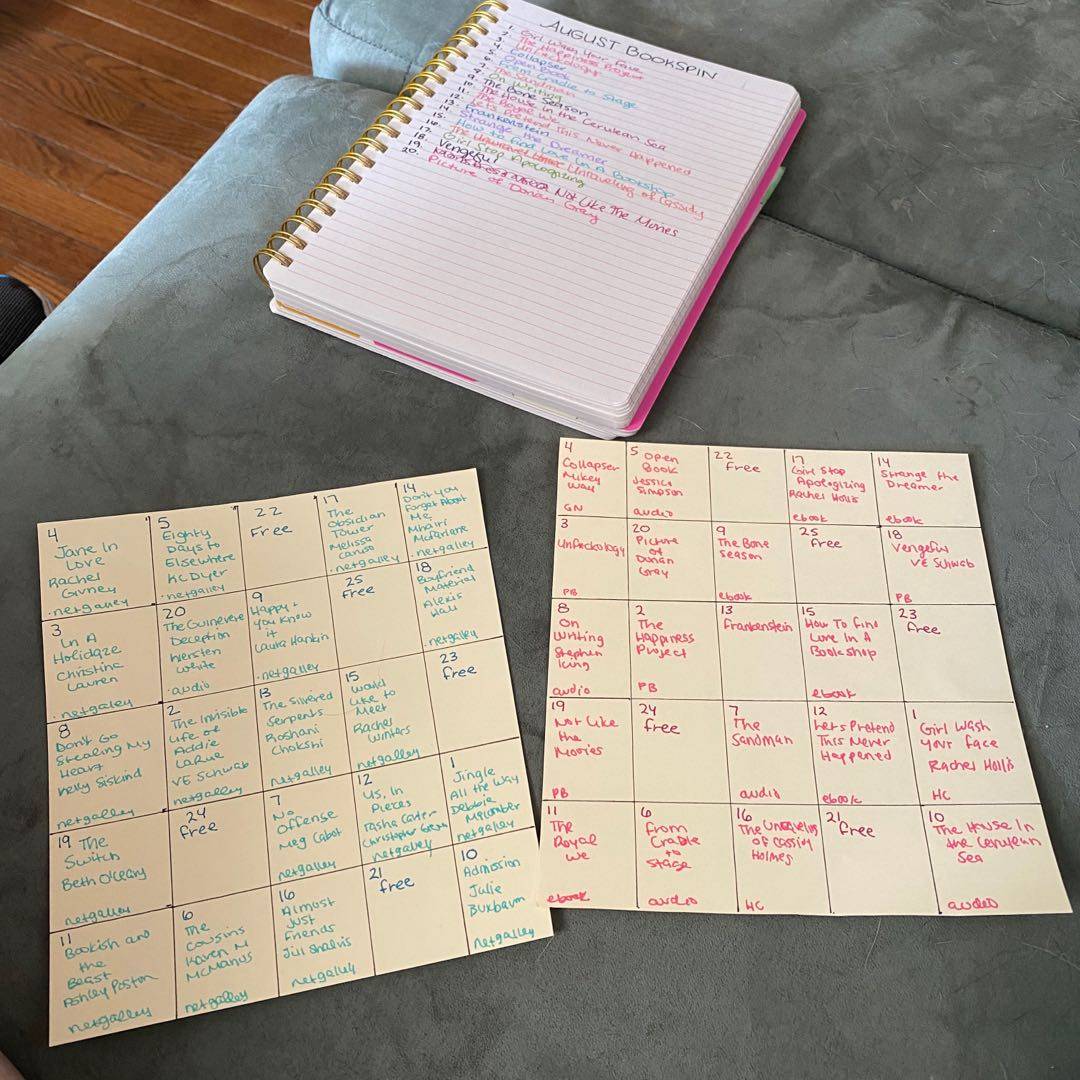 AUGUST BOOKSPIN
1. Girl Wash Your Face
2. The Happiness Project
3. Unf*ckology
4. Collapser
5. Open Book
6. From Cradle to Stage
7. The Sandman
8. On Writing
9. The Bone Season
10. The House in the Cerulean Sea
11. The Royal We
12. Let's Pretend This Never Happened
13. Frankenstein
14. Strange the Dreamer
15. How to Find Love In A Bookshop
16. The Unraveling of Cassidy
17. Girl Stop Apologizing
18. Vengeful
19. Not Like The Movies
20. Picture of Dorian Gray
4
Jane In
Love
Rachel
Givney
.netgalley
5
Eighty
Days to
Elsewhere
KC Dyer
.netgalley
22
Free
17
The
Obsidian
Tower
Melissa
Caruso
.netgalley
14
Don't You
Forget About
Me
Mhairi
McFarlane
.netgalley
3
In A
Holidaze
Christina
Lauren
.netgalley
20
The Guinevere
Deception
Kiersten
White
.audio
9
Happy +
You Know
it
Laura Hankin
.netgalley
25
Free
18
Boyfriend
Material
Alexis
Hall
.netgalley
8
Don't Go
Stealing My
Heart
Kelly Siskind
netgalley
2
The Invisible
Life of
Addie
LaRue
VE Schwab
netgalley
13
The Silvered
Serpents
Roshani
Chokshi
netgalley
15
Would
Like to
Meet
Rachel
Winters
netgalley
23
free
19 The
Switch
Beth O'Leary
netgalley
24
Free
7
No
Offense
Meg Cabot
netgalley
12
Us, In
Pieces
Tasha
Christopher
netgalley
1
Jingle
All the Way
Debbie
Macomber
netgalley
11
Bookish and
the
Beast
Ashley Poston
netgalley
6
The
Cousins
Karen M
McManus
netgalley
16
Almost
Just
Friends
Jill Shalvis
netgalley
21
free
10
Admission
Julie
Buxbaum
netgalley
4
Collapser
Mikey
Way
GN
5 Open
Book
Jessica
Simpson
audio
22
free
17
Girl Stop
Apologizing
Rachel Hollis
ebook
14
Strange the
Dreamer
ebook
3
Unf*ckology
PB
20
Picture
of
Dorian
Gray
9
The Bone
Season
ebook
25
free
18
Vengeful
VE Schwab
PB
8
On
Writing
Stephen
King
audio
2
The
Happiness
Project
PB
13
Frankenstein
15
How To Find
Love In A
Bookshop
ebook
23
free
19
Not Like
the
Movies
PB
24
free
7
The
Sandman
audio
12
Let's Pretend
This Never
Happened
ebook
1
Girl Wash
Your Face
Rachel Hollis
HC
11
The
Royal
We
ebook
6
From
Cradle
to
Stage
audio
16
The Unraveling
of Cassidy
Holmes
HC
21
free
10
The House In
the Cerulean
Sea
audio